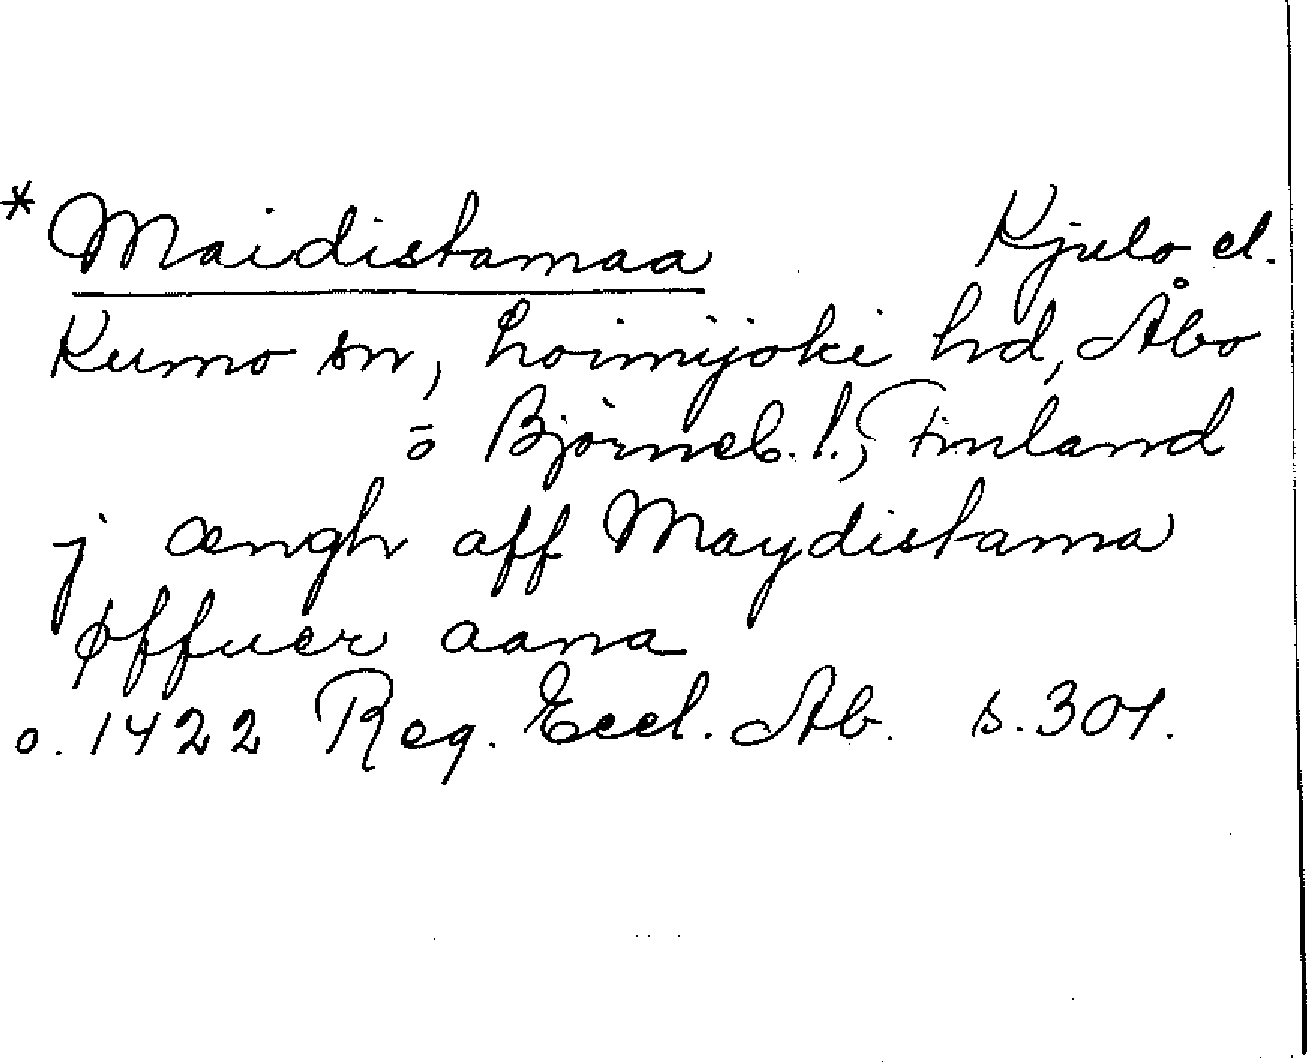 * Maidistamaa Kjulo el.
Kumo sn, Loimijoki hd, Åbo
o Björneb. l., Finland
j ængh aff Maydistama
øffuer aana
o. 1422 Reg. Eccl. Ab. s. 301.